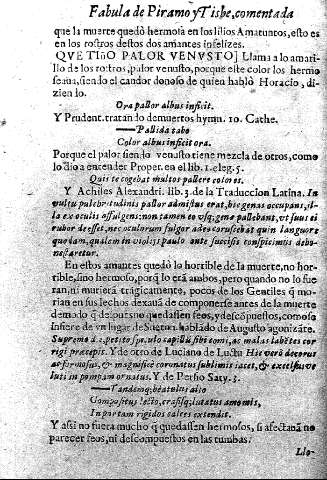 Fabula de Piramo y Tisbe, comentada
que la muerte quedò hermosa en los lilios Amatuntos, esto es
en los rostros destos dos amantes infelizes.
QVE TIñO PALOR VENVSTO] Llama a lo amari-
llo de los rostros, palor venusto, porque este color los hermo
seaua, siendo el candor donoso de quien hablò Horacio, di-
zien lo.
Ora pallor albus inficit.
Y Prudent. tratando de muertos hymn. 10. Cathe.
Pallida tabo
Color albus inficit ora.
Porque el palor siendo venusto tiene mezcla de otros, como
lo dio a entender Proper. en el lib. 1. eleg. 5.
Quis te cogebat multos pallere colores.
Y Achiles Alexandri. lib. 3. de la Traduccion Latina. In
vultu pulchritudinis pallor admistus erat, hic genas occupans, il-
la ex oculis affulgens: non tamen eo vsq; genæ pallebant, vt suus ei
rubor deesset, nec oculorum fulgor adeo coruscabat quin languore
quodam, qualem in violis paulo ante succisis conspicimus debo-
nestaretur.
En estos amantes quedò lo horrible de la muerte, no hor-
rible, sino hermoso, porq̃ lo erã ambos, pero quando no lo fue
ran, ni murierã tragicamente, pocos de los Gentiles q̃ mo-
rian en sus lechos dexauã de componerse antes de la muerte
de modo q̃ despues no quedassen feos, y descõpuestos, como se
infiere de vn lugar de Sueton. hablãdo de Augusto agonizãte.
Supremo die, petito speculo capillũ sibi comi, ac malas labẽtes cor
rigi præcepit. Y de otro de Luciano de Luctu Hic verò decorus
ac formosus, & magnificè coronatus sublimis iacet, & excelsus ve
luti in pompam ornatus. Y de Persio Saty. 3.
Tandemq; beatulus alto
Compositus lecto, crassisq; lutatus amomis,
In portam rigidos calces extendit.
Y assi no fuera mucho q̃ quedassen hermosos, si afectauã no
parecer feos, ni descompuestos en las tumbas.
Llo-